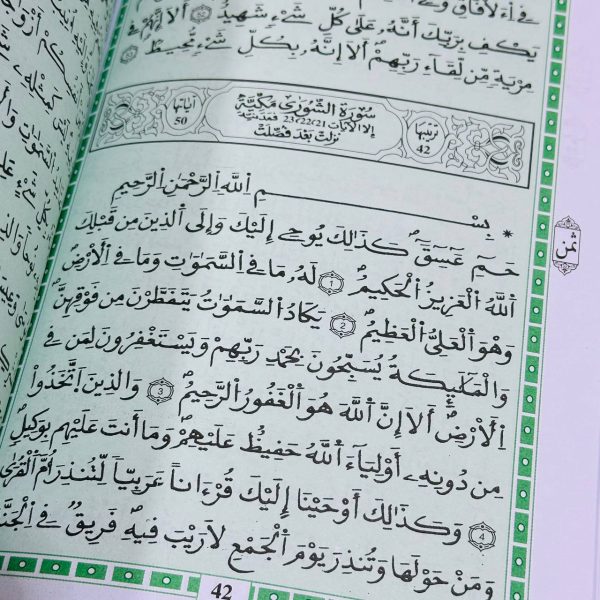 فِے اِ۬لَافَاقِ وَفِے
يَكْفِ بِرَبِّكَ أَنَّهُۥ عَلَىٰ كُلِّ شَےْءٖ شَهِيدٌ أَلَآ إِنَّهُمْ فِے
مِرْيَةٖ مِّن لِّقَآءِ رَبِّهِمُۥٓ أَلَآ إِنَّهُۥ بِكُلِّ شَےْءٖ مُّحِيطٌ
ترتيبها 42
سُورَةُ الشُّورَىٰ مَكِّيَّة
إلا الآيات 23،22،21 فمدنية
نزلت بعد فصلت
آياتها 50
بِسْمِ اِ۬للَّهِ اِ۬لرَّحْمَٰنِ اِ۬لرَّحِيمِ
حَمِٓ عَٓسِٓقَٓ كَذَٰلِكَ يُوحِےٓ إِلَيْكَ وَإِلَى اَ۬لذِينَ مِن قَبْلِكَ
اَ۬للَّهُ اُ۬لْعَزِيزُ اُ۬لْحَكِيمُ 1 لَهُۥ مَا فِے اِ۬لسَّمَٰوَٰتِ وَمَا فِے اِ۬لَارْضِ
وَهُوَ اَ۬لْعَلِيُّ اُ۬لْعَظِيمُ 2 يَكَادُ اُ۬لسَّمَٰوَٰتُ يَتَفَطَّرْنَ مِن فَوْقِهِنَّ
وَالْمَلَٰٓئِكَةُ يُسَبِّحُونَ بِحَمْدِ رَبِّهِمْ وَيَسْتَغْفِرُونَ لِمَن فِے
اِ۬لَارْضِ أَلَآ إِنَّ اَ۬للَّهَ هُوَ اَ۬لْغَفُورُ اُ۬لرَّحِيمُ 3 وَالذِينَ اَ۪تَّخَذُواْ
مِن دُونِهِۦٓ أَوْلِيَآءَ اَ۬للَّهُ حَفِيظٌ عَلَيْهِمْ وَمَآ أَنتَ عَلَيْهِم بِوَكِيلٖ
4 وَكَذَٰلِكَ أَوْحَيْنَآ إِلَيْكَ قُرْءَاناً عَرَبِيّاٗ لِّتُنذِرَ أُمَّ اَ۬لْقُرَىٰ
وَمَنْ حَوْلَهَا وَتُنذِرَ يَوْمَ اَ۬لْجَمْعِ لَا رَيْبَ فِيهِ فَرِيقٞ فِے اِ۬لْجَنَّةِ
42
ثمن